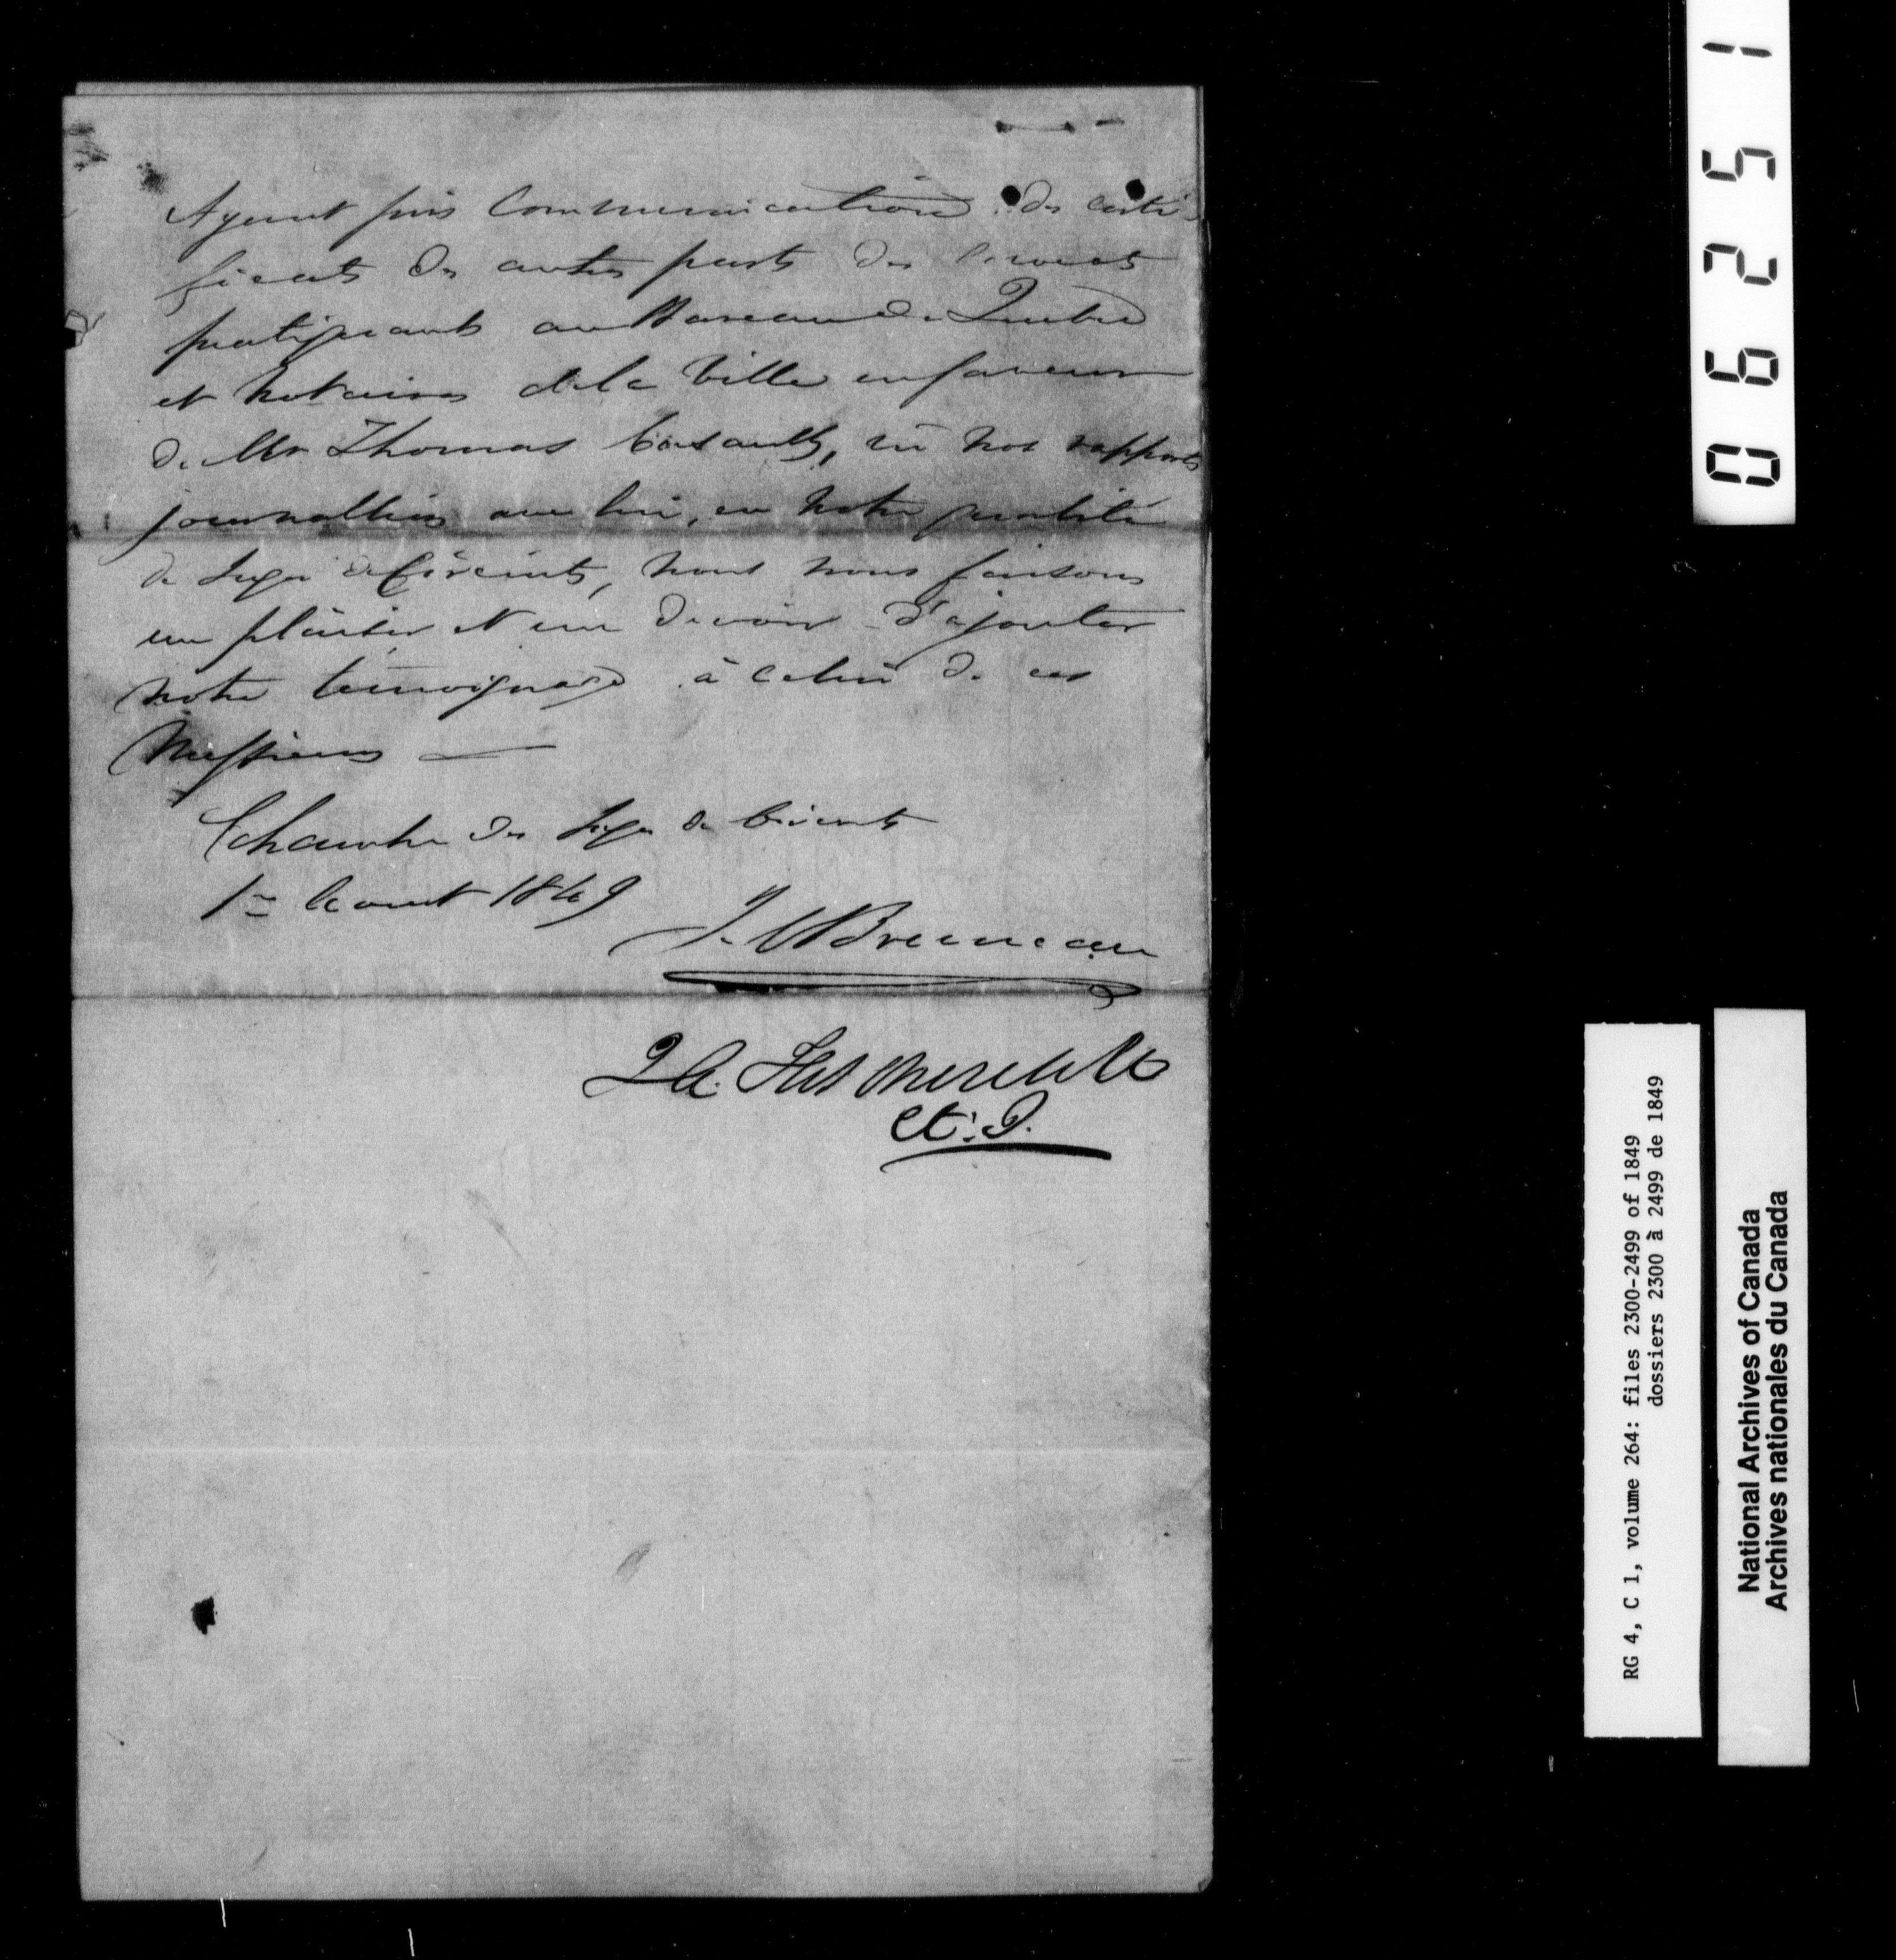 Ayant pris Communication des certi-
ficats des autres parts des avocats
pratiquants au Bareau de Quebec
et Notaires de la Ville en faveur
de Mr Thomas Casault, vu nos rapports
journalliers avec lui, en notre qualité
de Juges de Circuits, nous nous faisons
un plaisir et un devoir d'ajouter
notre temoignage à celui de ces
Messieurs —
Chambre des Juges de Circuits
1er Aout 1849
J. C Bruneau
C. J.
06251
RG 4, C 1, volume 264: files 2300-2499 of 1849
dossiers 2300 à 2499 de 1849
National Archives of Canada
Archives nationales du Canada